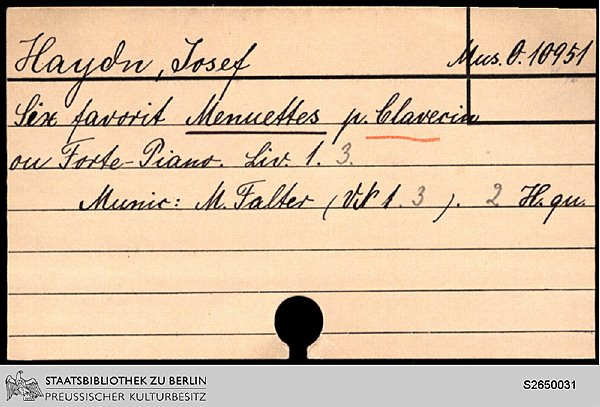 Haydn, Josef
Mus. O. 10951
Six favorit Menuettes p. Clavecin
ou Forte-Piano. Liv. 1. 3.
Munic: M. Falter (VN 1. 3). 2 H. qu.
STAATSBIBLIOTHEK ZU BERLIN
PREUSSISCHER KULTURBESITZ
S2650031